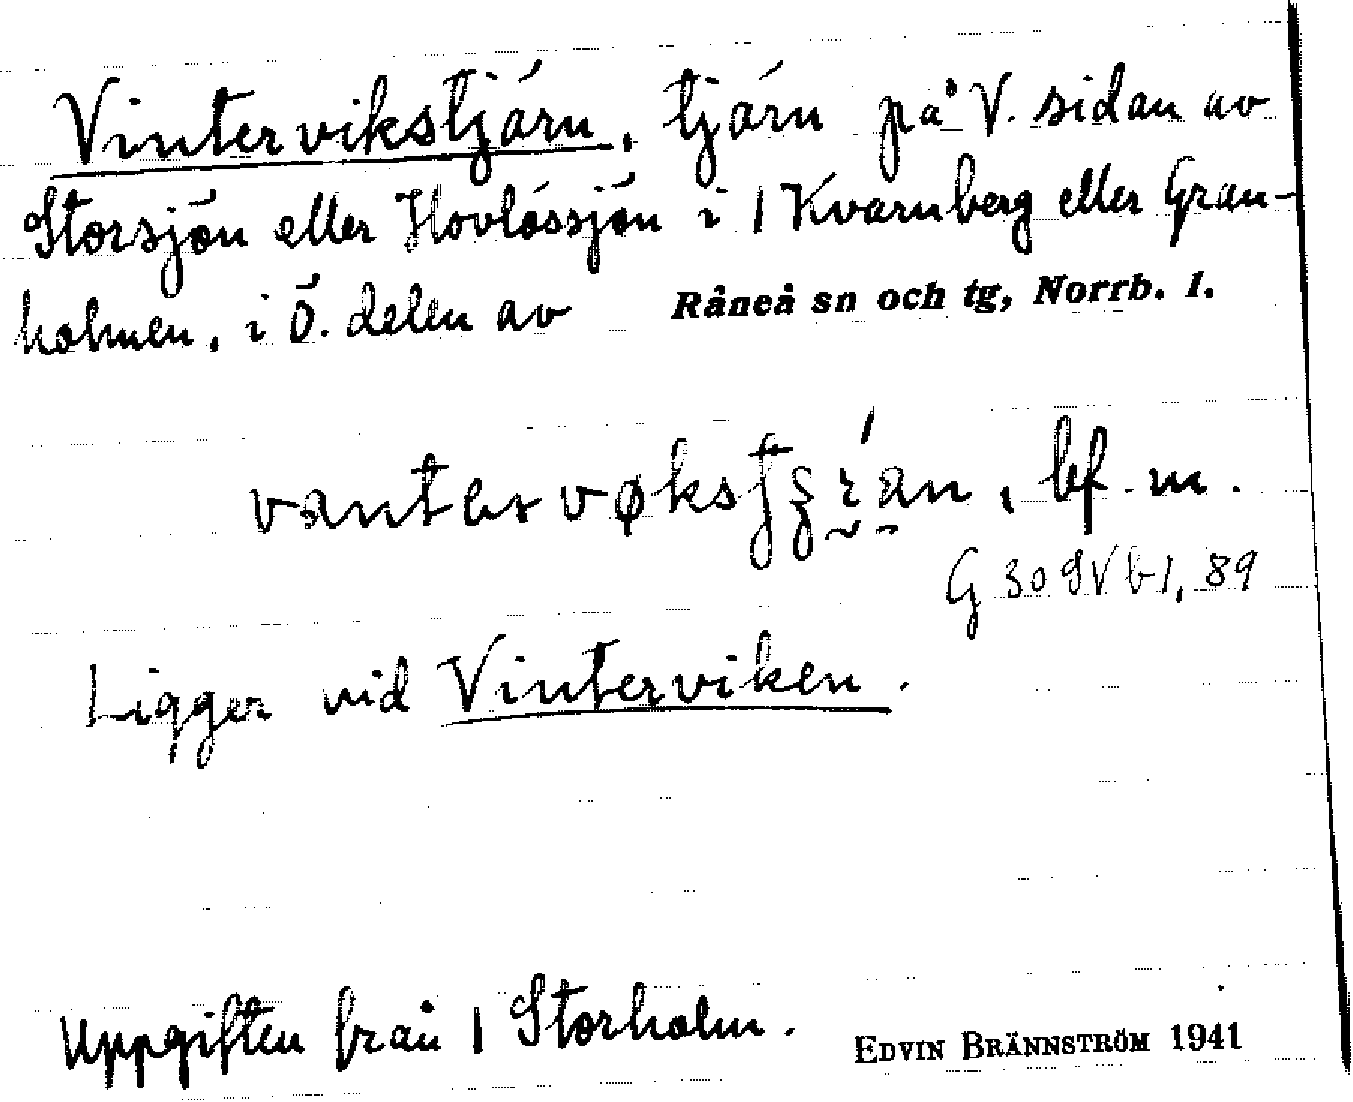 Vintervikstjärn, tjärn på V. sidan av
Storsjön eller Hovlössjön i 1 Kvarnberg eller Gran-
holmen, i Ö. delen av Råneå sn och tg, Norrb. l.
bf. m.
G 309 Vb 1, 89
Ligger vid Vinterviken.
Uppgiften från 1 Storholm. EDVIN BRÄNNSTRÖM 1941